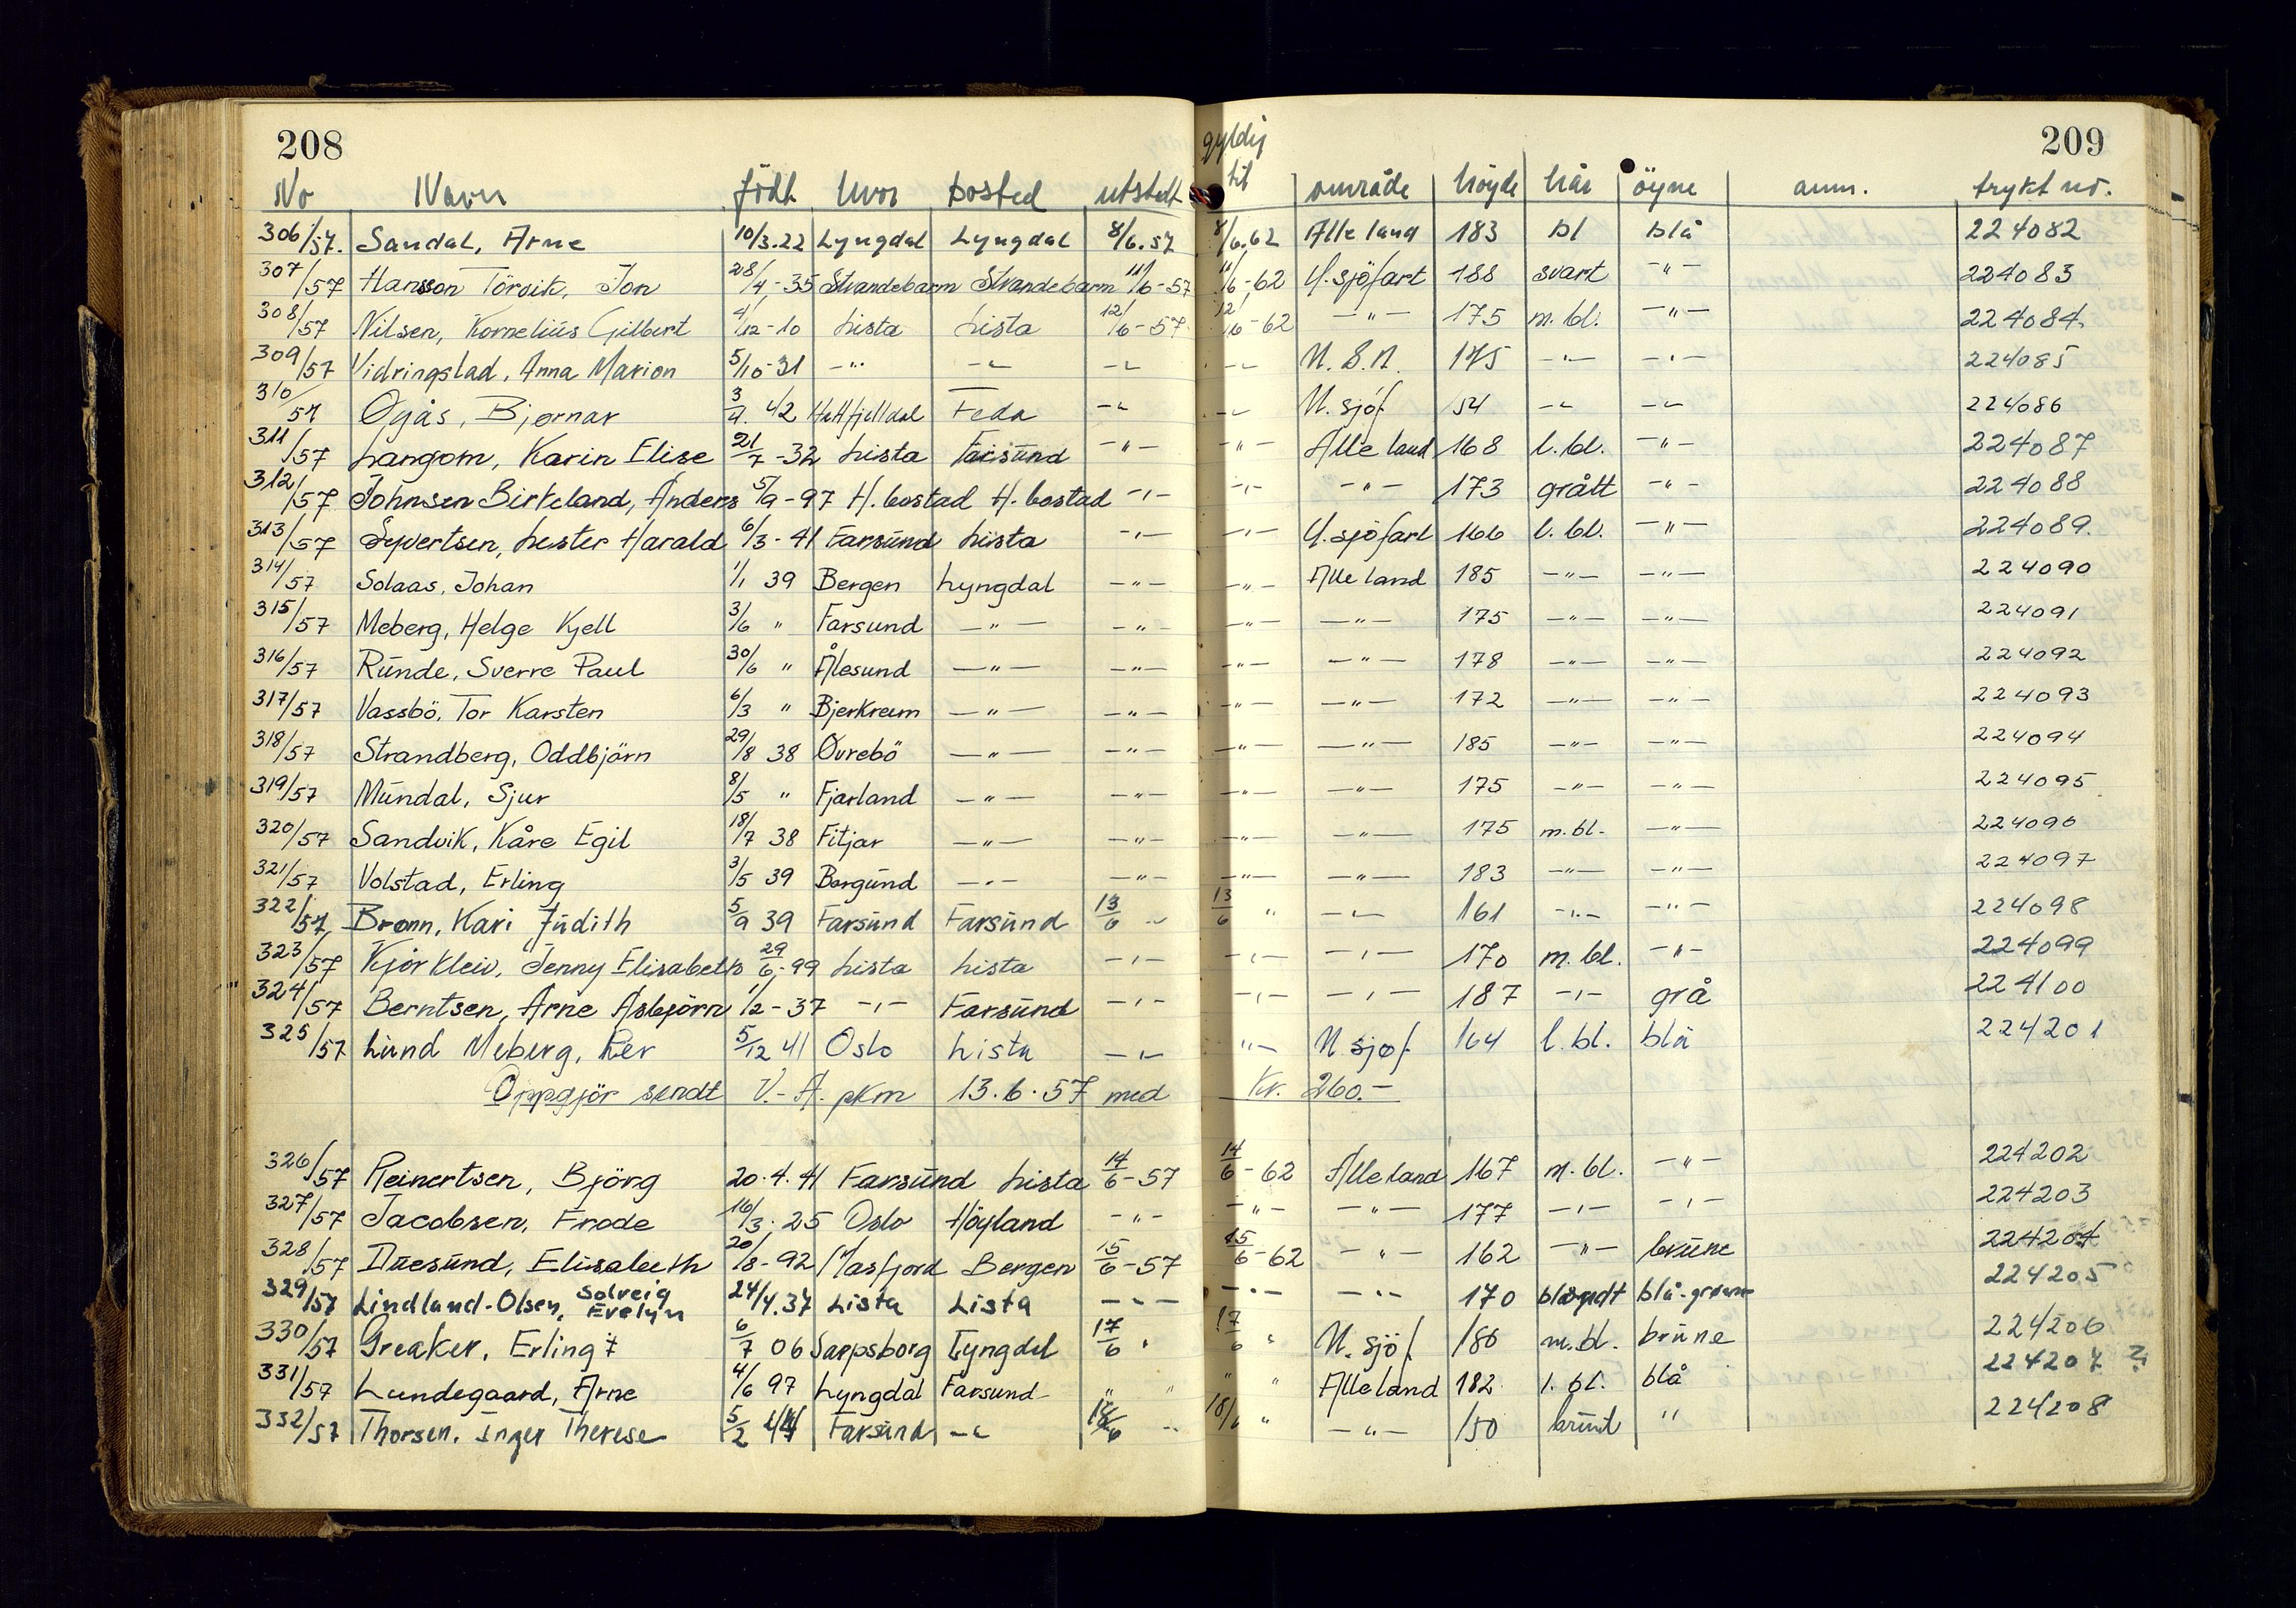 208 209
gyldig
No Navn födt hvor bosted utstedt til område höyde hår öyne anm. trykt nr.
306/57. Sandal, Arne 10/3.22 Lyngdal Lyngdal 8/6.57 8/6.62 Alle land 183 bl blå 224082
307/57 Hansson Törvik, Jon 28/4-35 Strandebarm Strandebarm 11/6-57 11/6-62 U.sjöfart 188 svart -"- 224083
308/57 Nilsen, Kornelius Gilbert 4/12-10 Lista Lista 12/6-57 12/6-62 -"- 175 m.bl. -"- 224084
309/57 Vidringstad, Anna Marion 5/10-31 -"- -"- -"- -"- U.S.A. 175 -"- -"- 224085
310/57 Øgås, Bjørnar 3/4. 42 Hattfjelldal Feda -"- -"- U.sjöf. 154 -"- -"- 224086
311/57 Langom, Karin Elise 21/7-32 Lista Farsund -"- -"- Alle land 168 l.bl. -"- 224087
312/57 Johnsen Birkeland, Anders 5/9-97 H.bostad H.bostad -"- -"- -"- 173 grått -"- 224088
313/57 Syvertsen, Lester Harald 6/3-41 Farsund Lista -"- -"- U.sjöfart 166 l.bl. -"- 224089.
314/57 Solaas, Johan 1/1 39 Bergen Lyngdal -"- -"- Alle land 185 -"- -"- 224090
315/57 Meberg, Helge Kjell 3/6 " Farsund -"- -"- -"- -"- 175 -"- -"- 224091
316/57 Runde, Sverre Paul 30/6 " Ålesund -"- -"- -"- -"- 178 -"- -"- 224092
317/57 Vassbö, Tor Karsten 6/3 " Bjerkreim -"- -"- -"- -"- 172 -"- -"- 224093
318/57 Strandberg, Oddbjörn 29/8 38 Øvrebö -"- -"- -"- -"- 185 -"- -"- 224094
319/57 Mundal, Sjur 8/5 " Fjærland -"- -"- -"- -"- 175 -"- -"- 224095
320/57 Sandvik, Kåre Egil 18/7 38 Fitjar -"- -"- -"- -"- 175 m.bl. -"- 224096
321/57 Volstad, Erling 3/5 39 Borgund -"- -"- -"- -"- 183 -"- -"- 224097
322/57 Brønn, Kari Judith 5/9 39 Farsund Farsund 13/6 " 13/6 " -"- 161 -"- -"- 224098
323/57 Kjörkleiv, Jenny Elisabeth 29/6-99 Lista Lista -"- -"- -"- 170 m.bl. -"- 224099
324/57 Berntsen, Arne Asbjörn 1/2-37 -"- Farsund -"- -"- -"- 187 -"- grå 224100
325/57 Lund Meberg, Per 5/12 41 Oslo Lista -"- -"- U sjöf. 164 l.bl. blå 224201
Oppgjör sendt V.-A. pkm 13.6.57 med kr. 260.-
326/57 Reinertsen, Björg 20.4.41 Farsund Lista 14/6-57 14/6-62 Alle land 167 m.bl. -"- 224202
327/57 Jacobsen, Frode 16/3.25 Oslo Höyland -"- -"- -"- 177 -"- -"- 224203
328/57 Duesund, Elisabeth 20/8-92 Masfjord Bergen 15/6-57 15/6-62 -"- 162 -"- brune 224204
329/57 Lindland-Olsen, Solveig Evelyn 24/4.37 Lista Lista -"- -"- -"- 170 blondt blå-grønne 224205
330/57 Greaker, Erling 6/7 06 Sarpsborg Lyngdal 17/6 " 17/6 " U.sjöf. 186 m.bl. brune 224206
331/57 Lundegaard, Arne 4/6 97 Lyngdal Farsund " " " " Alle land 182 l.bl. blå 224207 ?
332/57 Thorsen, Inger Therese 5/2 44 Farsund -"- 18/6 " 18/6 " -"- 150 brunt " 224208